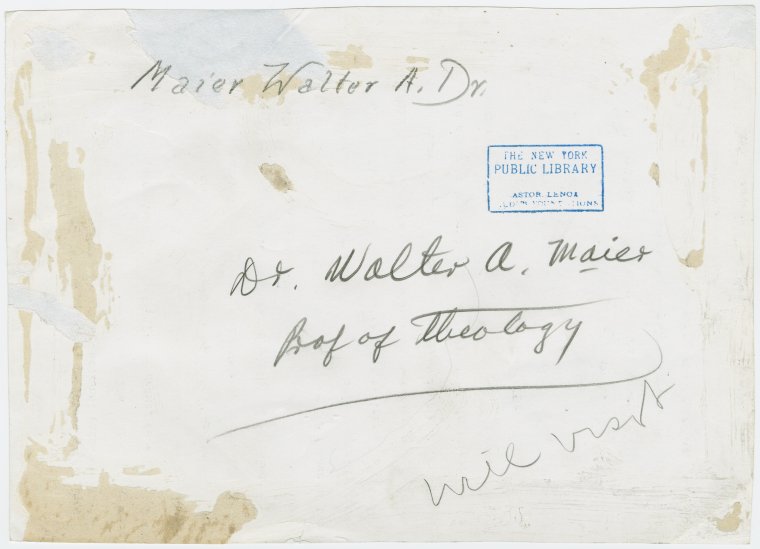 Maier Walter A. Dr.
THE NEW YORK
PUBLIC LIBRARY
ASTOR, LENOX
Dr. Walter A. Maier
Prof of Theology
will visit